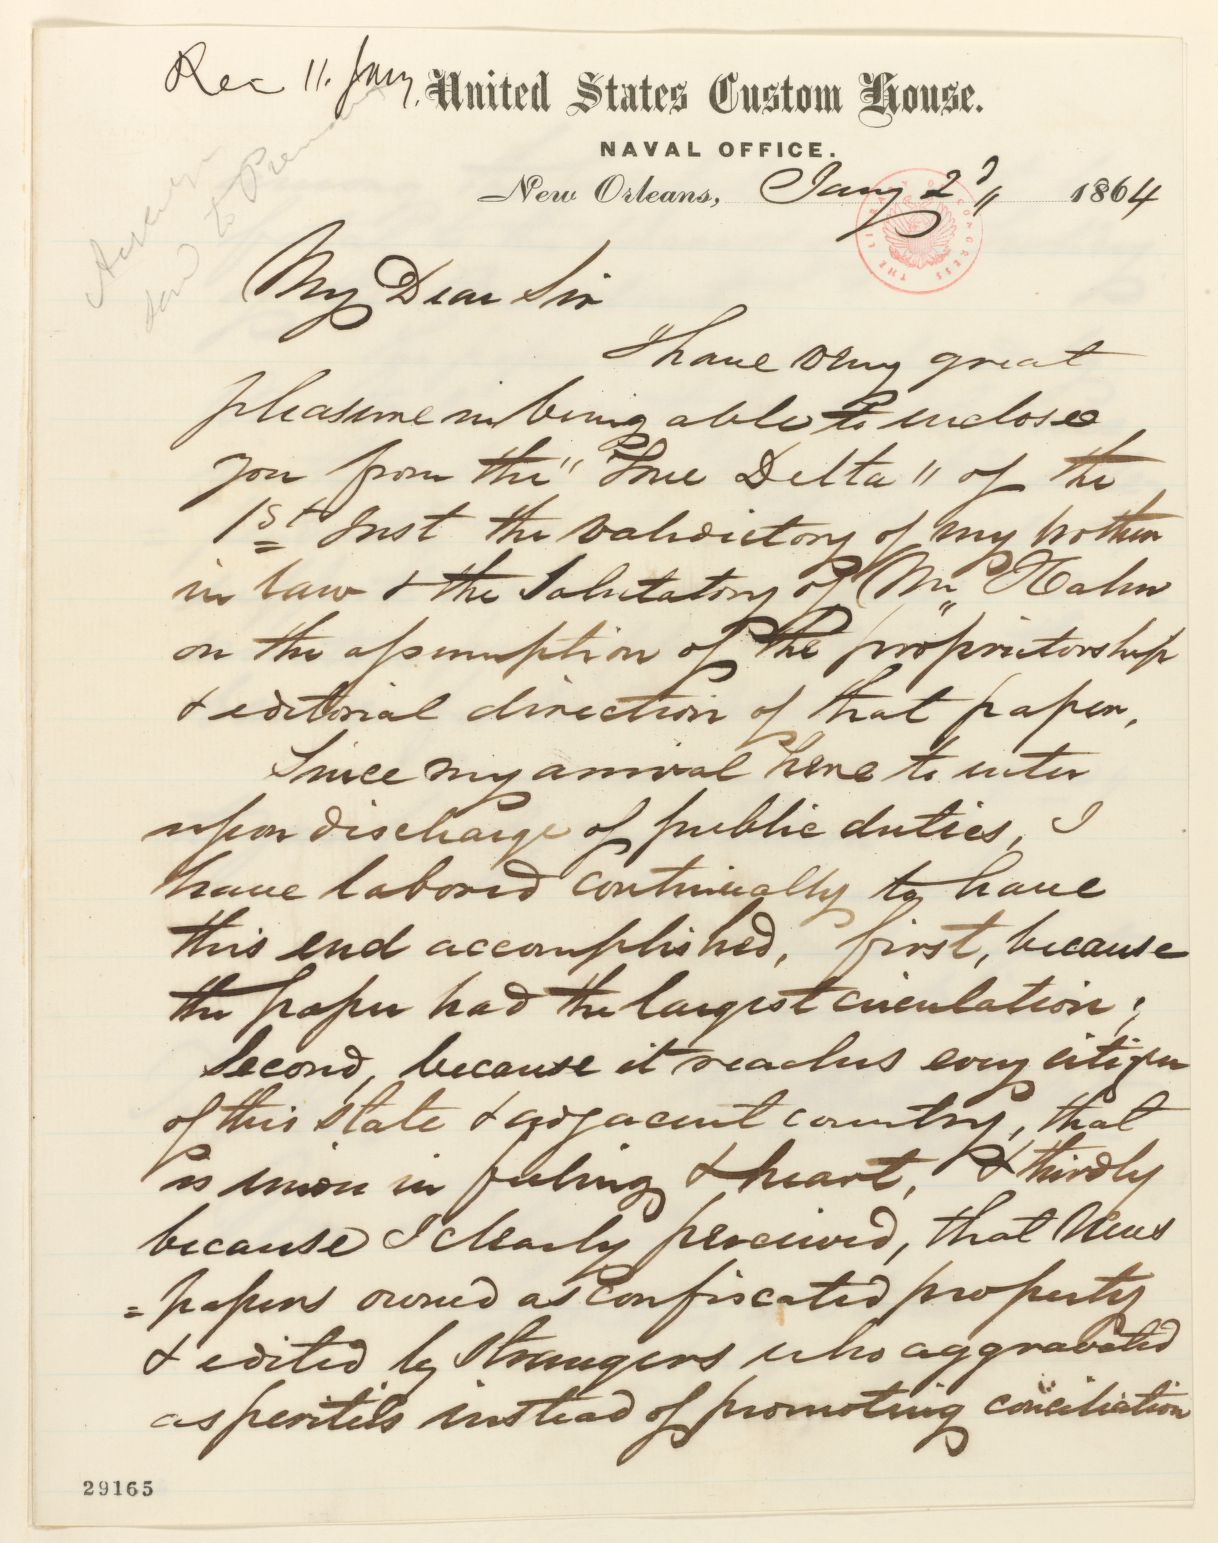 Rec 11. Jany.
United States Custom House.
NAVAL OFFICE.
New Orleans, Jany 2d 1864
to
THE LIBRARY OF CONGRESS
My Dear Sir
I have very great
pleasure in being able to enclose
you from the "True Delta" of the
1st Inst the validictory of my brother
in law & the Salutatory of Mr Hahn
on the assumption of the proprietorship
& editorial direction of that paper.
Since my arrival here to enter
upon discharge of public duties, I
have labored continually to have
this end accomplished, first, because
the paper had the largest circulation;
Second, because it reaches every citizen
of this state & adjacent country, that
is union in feeling & heart, & thirdly
because I clearly perceived, that News
=papers owned as confiscated property
& edited by strangers who aggravated
asperities instead of promoting conciliation
29165